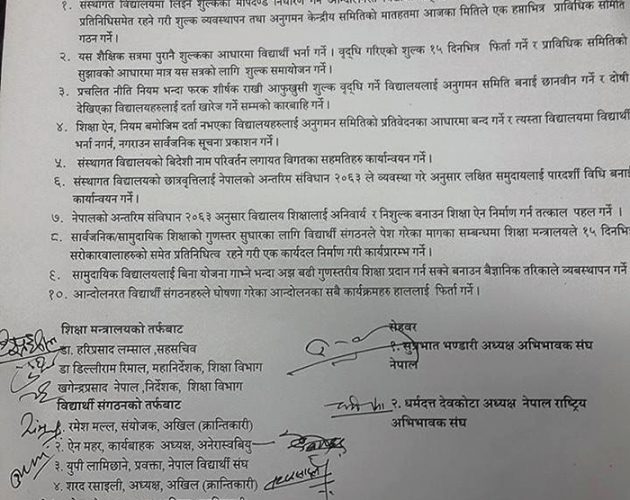 १. संस्थागत विद्यालयमा लिइने शुल्कको मापदण्ड निर्धारण गर्न
प्रतिनिधिसमेत रहने गरी शुल्क व्यवस्थापन तथा अनुगमन केन्द्रीय समितिको मातहतमा आजका मितिले एक हप्ताभित्र प्राविधिक समिति
गठन गर्ने ।
२. यस शैक्षिक सत्रमा पुरानै शुल्कका आधारमा विद्यार्थी भर्ना गर्ने । वृद्धि गरिएको शुल्क १५ दिनभित्र फिर्ता गर्ने र प्राविधिक समितिको
सुझावको आधारमा मात्र यस सत्रको लागि शुल्क समायोजन गर्ने ।
३. प्रचलित नीति नियम भन्दा फरक शीर्षक राखी आफुखुसी शुल्क वृद्धि गर्ने विद्यालयलाई अनुगमन समिति बनाई छानवीन गर्ने र दोषी
देखिएका विद्यालयहरुलाई दर्ता खारेज गर्ने सम्मको कारबाहि गर्ने ।
४. शिक्षा ऐन, नियम बमोजिम दर्ता नभएका विद्यालयहरुलाई अनुगमन समितिको प्रतिवेदनका आधारमा बन्द गर्ने र त्यस्ता विद्यालयमा विद्यार्थी
भर्ना नगर्न, नगराउन सार्वजनिक सूचना प्रकाशन गर्ने ।
५. संस्थागत विद्यालयको बिदेशी नाम परिवर्तन लगायत विगतका सहमतिहरु कार्यान्वयन गर्ने ।
६. संस्थागत विद्यालयको छात्रवृत्तिलाई नेपालको अन्तरिम संविधान २०६३ ले व्यवस्था गरे अनुसार लक्षित समुदायलाई पारदर्शी विधि बनाई
कार्यान्वयन गर्ने ।
७. नेपालको अन्तरिम संविधान २०६३ अनुसार विद्यालय शिक्षालाई अनिवार्य र निशुल्क बनाउन शिक्षा ऐन निर्माण गर्न तत्काल पहल गर्ने ।
८. सार्वजनिक/सामुदायिक शिक्षाको गुणस्तर सुधारका लागि विद्यार्थी संगठनले पेश गरेका मागका सम्बन्धमा शिक्षा मन्त्रालयले १५ दिनभित्र
सरोकारवालाहरुको समेत प्रतिनिधित्व रहने गरी एक कार्यदल निर्माण गरी कार्यप्रारम्भ गर्ने ।
९. सामुदायिक विद्यालयलाई बिना योजना गाभ्ने भन्दा अझ बढी गुणस्तरीय शिक्षा प्रदान गर्न सक्ने बनाउन बैज्ञानिक तरिकाले व्यबस्थापन गर्ने
१०. आन्दोलनरत विद्यार्थी संगठनहरुले घोषणा गरेका आन्दोलनका सबै कार्यक्रमहरु हाललाई फिर्ता गर्ने ।
शिक्षा मन्त्रालयको तर्फबाट
डा. हरिप्रसाद लम्साल ,सहसचिव
डा डिल्लीराम रिमाल, महानिर्देशक, शिक्षा विभाग
खगेन्द्रप्रसाद नेपाल ,निर्देशक, शिक्षा विभाग
विद्यार्थी संगठनको तर्फबाट
१. रमेश मल्ल, संयोजक, अखिल (क्रान्तिकारी)
२. ऐन महर, कार्यबाहक अध्यक्ष, अनेरास्वबियु
३. युपी लामिछाने, प्रवक्ता, नेपाल विद्यार्थी संघ
४. शरद रसाइली, अध्यक्ष, अखिल (क्रान्तिकारी)
रोहवर
१. सुप्रभात भण्डारी अध्यक्ष अभिभावक संघ
नेपाल
२. धर्मदत्त देवकोटा अध्यक्ष नेपाल राष्ट्रिय
अभिभावक संघ